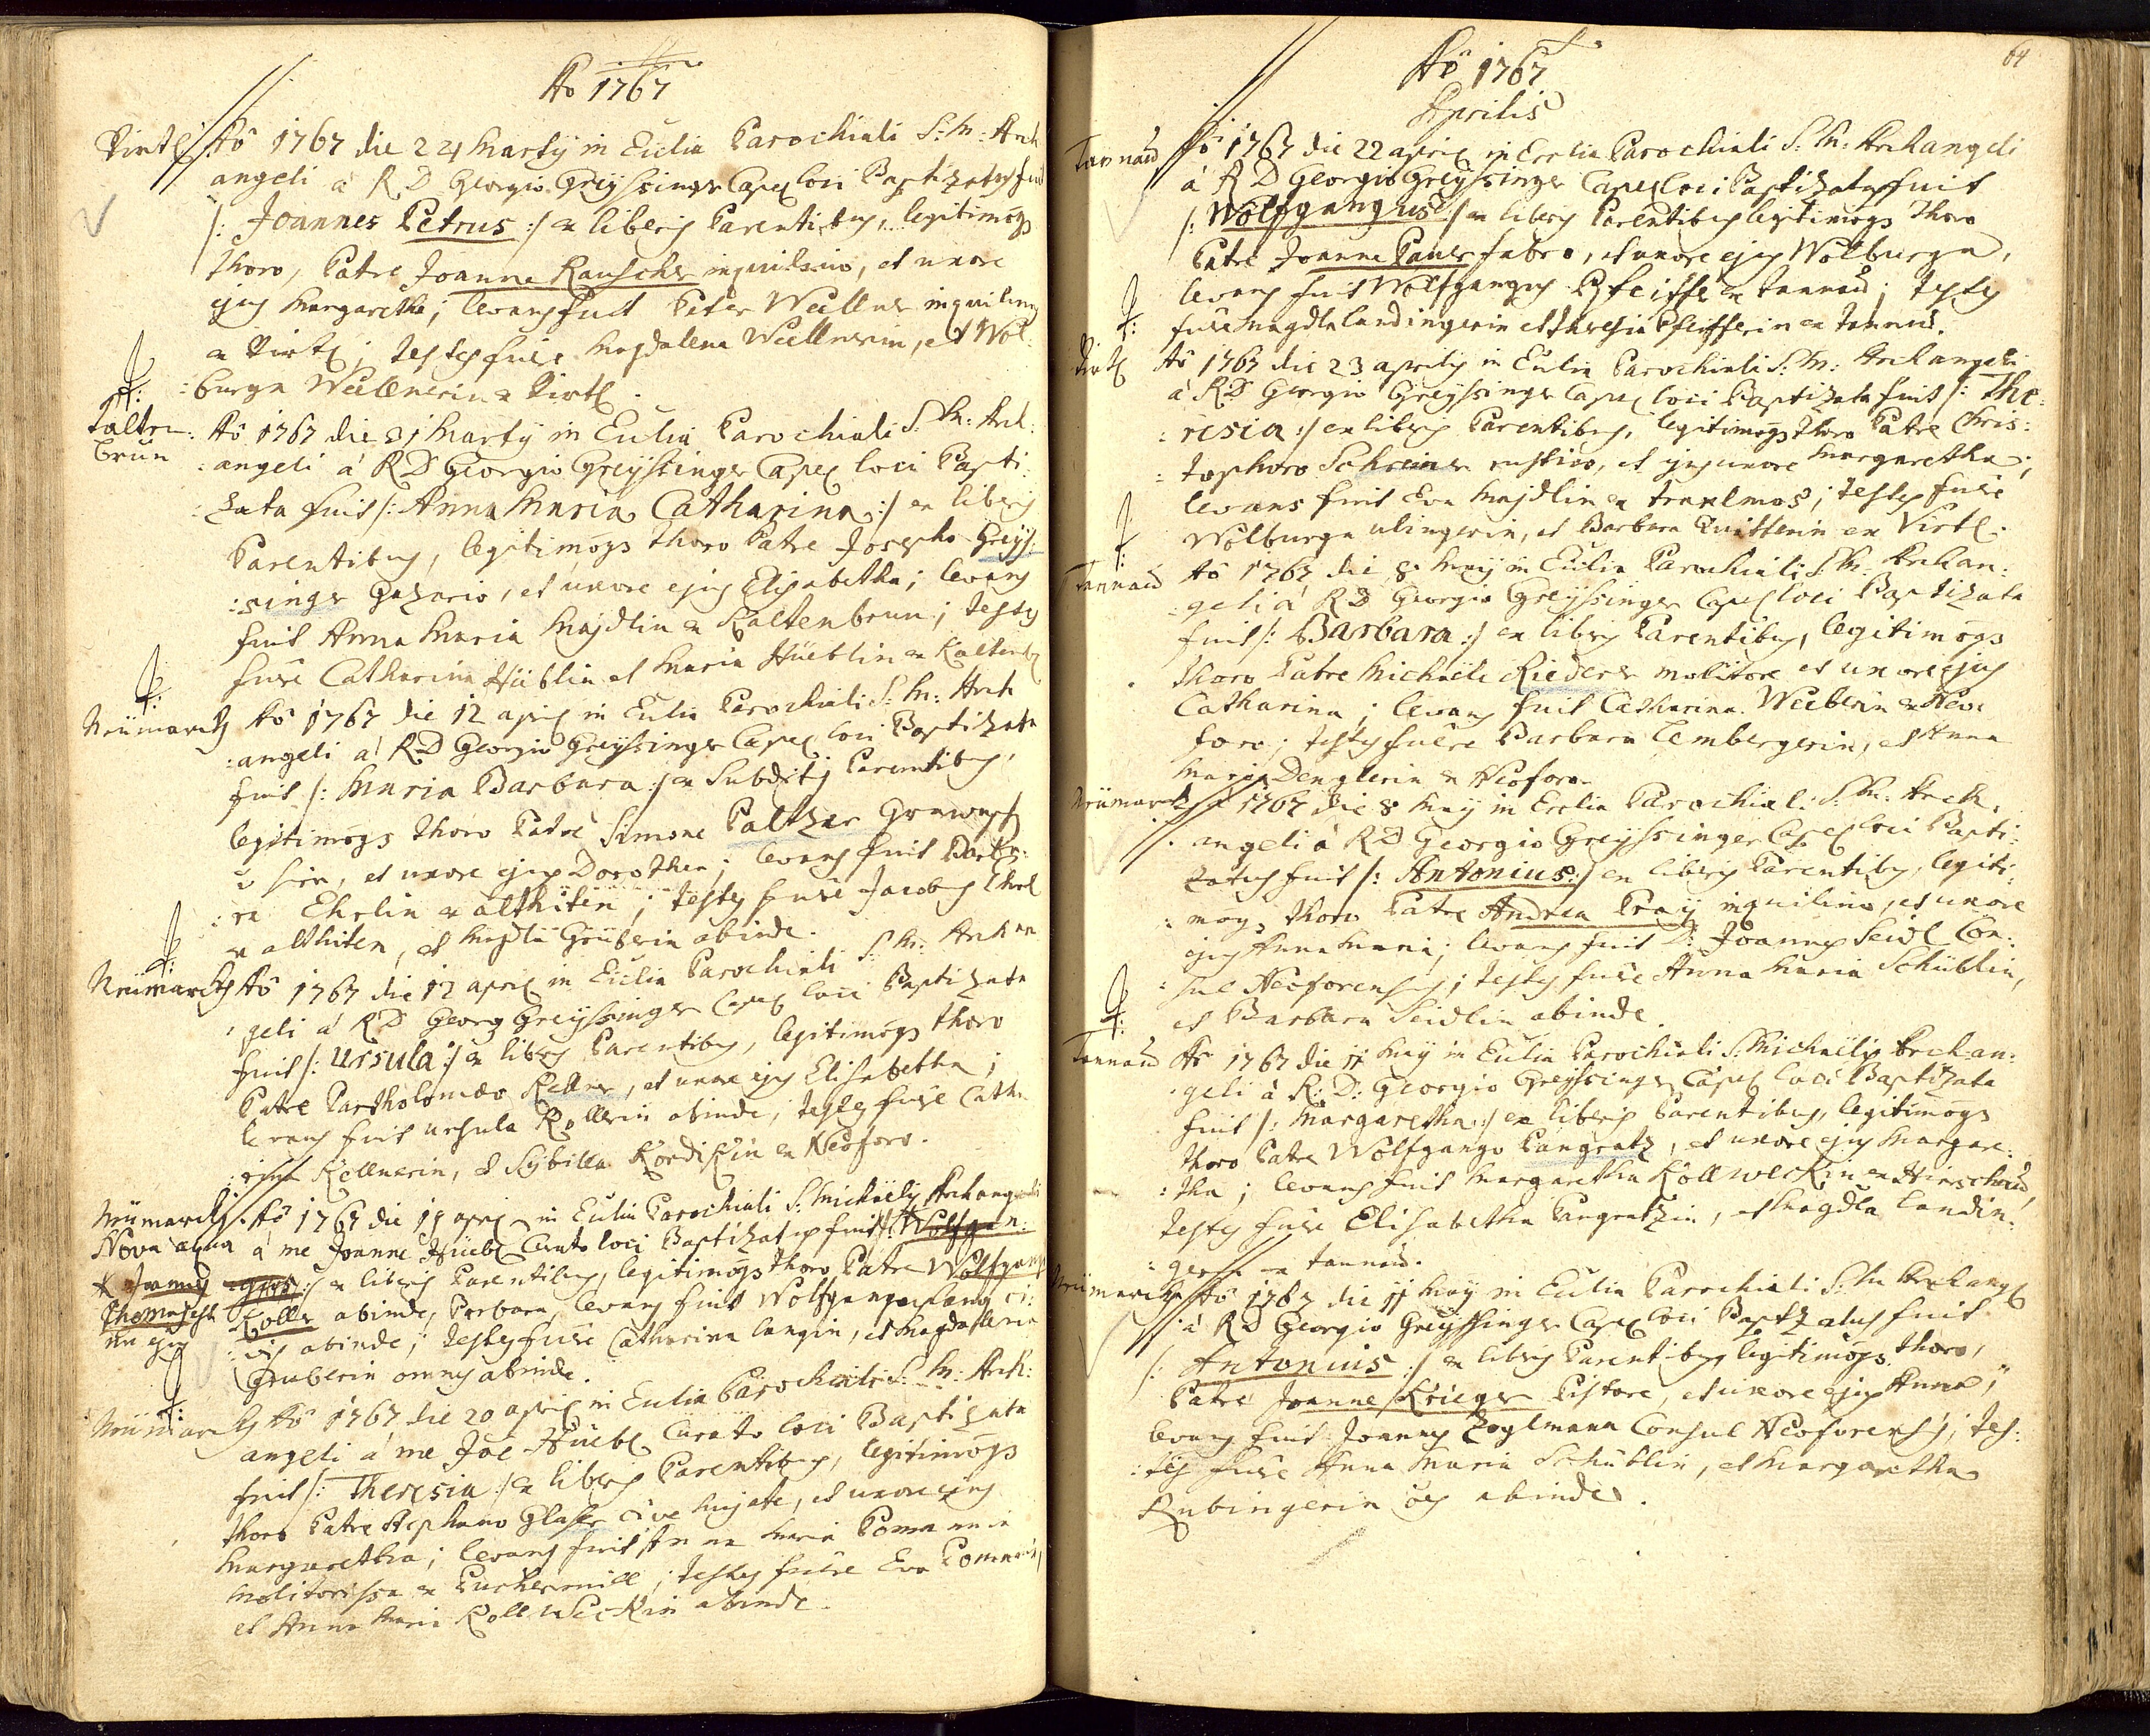 Aô 1767
Virtl Aô 1767 die 24 Martij in Ecclia Parochiali S: M: Arch
angeli á R D Georgio Greÿssinger Capel loci Baptizatus fuit
/: Joannes Petrus :/ ex liberis Parentibus, legitimoqs
thoro, Patre Joanne Rauscher inquilino, et uxore
ejus Margaretha; levans fuit Peter Weellner inquilinus
ex Virtl; testes fuêre Magdalena Weellnerin, et Wol:
:burga Weellnerin ex Virtl.
Kalten: Aô 1767 die 31 Martij in Ecclia Parochiali S: M: Arch:
brun :angeli á R D Georgio Greÿssinger Capel loci Bapti:
:zata fuit /: Anna Maria Catharina :/ ex liberis
Parentibus, legitimoqs thoro Patre Josepho Greÿs:
:singer, et uxore ejus Elisabetha; levans
fuit Anna Maria Majdlin ex Kaltenbrun; testes
fuêre Catharina Hüeblin et Maria Hüeblin ex Kaltenb
Neümarckh Aô 1767 die 12 april in Ecclia Parochiali S: M: Arch
:angeli á R D Georgio Greÿssinger Capel loci Baptizata
fuit /: Maria Barbara :/ ex Subditis Parentibus,
legitimoqs thoro Patre Simone Paltzer
et uxore ejus Dorothea; levans fuit Barba:
:ra Ehrlin ex althüten; testes fuêre Jacobus Ehrl
ex althiten, et Magdla Grüberin abinde.
Neümarckh Aô 1767 die 12 april in Ecclia Parochiali S: M: Archan
:geli á R D Georg Greÿssinger Capel loci Baptizata
fuit /: Ursula :/ ex liberis Parentibus, legitimoqs thoro
Patre Bartholomæo Kellner, et uxore ejus Elisabetha;
levans fuit Ursula Kollerin abinde; testes fuêre Catha
:rina Kellnerin, et Sÿbilla Kordikin ex Neoforo.
Neümarckh Aô 1767 die 19 april in Ecclia Parochiali S: Michaëlis Archangeli
Nova aqua á me Joanne Hüebl Curato loci Baptizatus fuit /: Wolfgan:
x Joannes :gus :/ ex liberis Parentibus, legitimoqs thoro Patre Wolfgango
Thomas Koller abinde, Barbara, levans fuit Wolfgangus Lang ci:
ejus :vis abinde; testes fuêre Catharina Langin, et Magdalena
Gruberin omnes abinde.
Neümarckh Aô 1767 die 20 april in Ecclia Parochiali S: M: Arch:
angeli á me Joê Hüebl Curato loci Baptizata
fuit /: Theresia :/ ex liberis Parentibus, legitimoqs
thoro Patre Stephano Glaser cive hujate, et uxore ejus
Margaretha; levans fuit Anna Maria Pomanin
molitorissa ex; testes fuêre Eva Pomanin,
et Anna Maria Kollweckin abinde.
64
Aô 1767
Aprilis
Tannaid Aô 1767 die 22 april in Ecclia Parochiali S: M: Archangeli
á R D Georgio Greÿssinger Capel loci Baptizatus fuit
/: Wolfgangus :/ ex liberis Parentibus legitimoqs thoro
Patre Joanne Pauer fabro, et uxore ejus Wolburga,
levans fuit Wolfgangus Pfeiffer ex Tannaid; testes
fuêre Magdla Landingerin et Theresia Pfeifferin ex Tannaid.
Virtl Aô 1767 die 23 aprilis in Ecclia Parochiali S: M: Archangeli
á R D Georgio Greÿssinger Capel loci Baptizata fuit /: The:
:resia :/ ex liberis Parentibus, legitimoqs thoro Patre Chris:
:tophoro Schreiner rustico, et ejus uxore Margaretha;
levans fuit Eva Majdlin ex; testes fuêre
Wolburga Ulingerin, et Barbara Quitterin ex Virtl.
Tannaid Aô 1767 die 8 Maÿ in Ecclia Parochiali S: M: Archan:
:geli á R D Georgio Greÿssinger Capel loci Baptizata
fuit /: Barbara :/ ex liberis Parentibus, legitimoqs
thoro Patre Michaële Riederer molitore et uxore ejus
Catharina; levans fuit Catharina Weeberin ex Neo:
foro; testes fuêre Barbara Lembergerin, et Anna
Maria Denglerin ex Neoforo.
Neümarckh Aô 1767 die 8 Maÿ in Ecclia Parochiali S: M: Arch:
angeli á R D Georgio Greÿssinger Capel loci Bapti:
zatus fuit /: Antonius :/ ex liberis Parentibus, legiti:
:moqs thoro Patre Andrea Praÿ inquilino, et uxore
ejus Anna Maria; levans fuit D: Joannes Seidl Con:
:sul Neoforensis; testes fuêre Anna Maria Schüblin,
et Barbara Seidlin abinde.
Tannaid Aô 1767 die 11 Maÿ in Ecclia Parochiali S: Michaëlis Archan:
:geli á R: D: Georgio Greÿssinger Capel loci Baptizata
fuit /: Margaretha :/ ex liberis Parentibus, legitimoqs
thoro Patre Wolfgango Pangratz, et uxore ejus Margare:
:tha; levans fuit Margaretha Kollweckin ex
testes fuêre Elisabetha Pangratzin, et Magdla Landin:
:gerin ex Tannaid.
Neümarckh Aô 1767 die 11 Maÿ in Ecclia Parochiali S: M: Archangl
á R D Georgio Greÿssinger Capel loci Baptizatus fuit
/: Antonius :/ ex liberis Parentibus legitimoqs thoro,
Patre Joanne Krieger Pistore, et uxore ejus Anna;
levans fuit Joannes Zoglmann Consul Neoforensis; tes:
:tes fuêre Anna Maria Schüblin, et Margaretha
Rubingerin oês abinde.